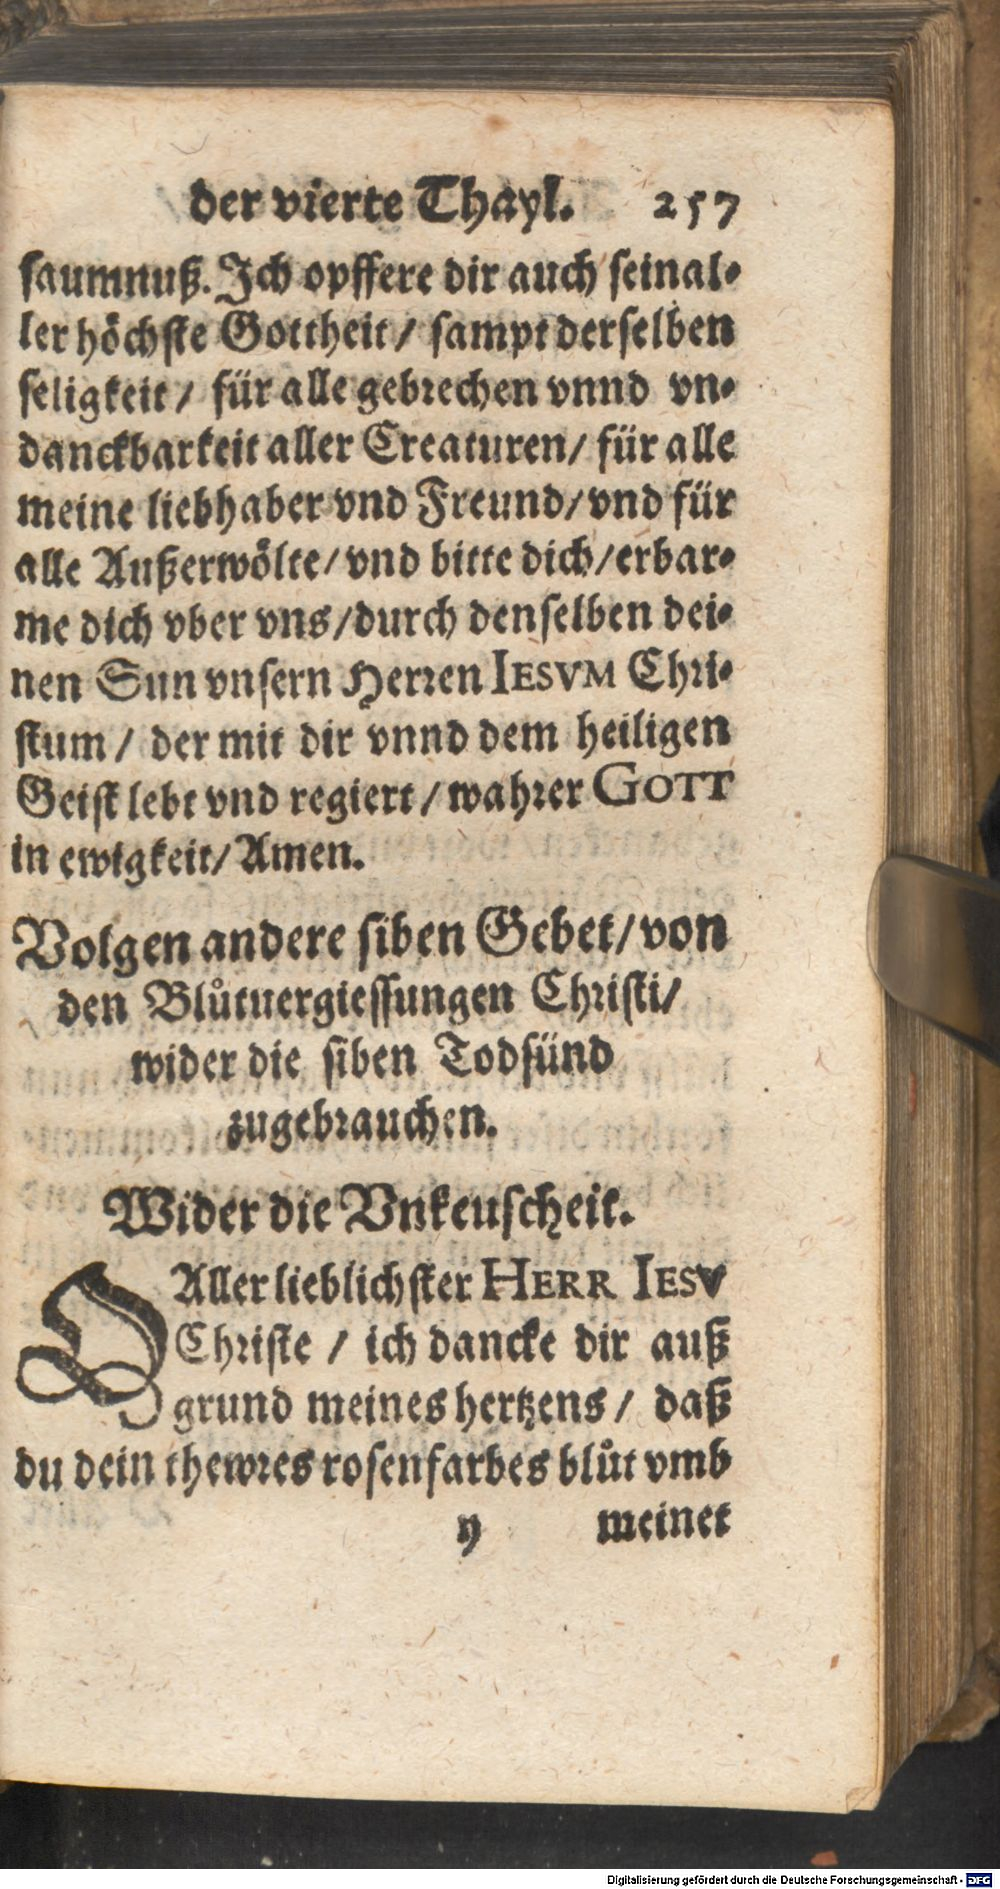 der vierte Thayl. 257
saumnuß. Ich opffere dir auch seinal-
ler höchste Gottheit / sampt derselben
seligkeit / für alle gebrechen vnnd vn-
danckbarkeit aller Creaturen / für alle
meine liebhaber vnd Freund / vnd für
alle Außerwölte / vnd bitte dich / erbar-
me dich vber vns / durch denselben dei-
nen Sun vnsern Herren IESVM Chri-
stum / der mit dir vnnd dem heiligen
Geist lebt vnd regiert / wahrer GOTT
in ewigkeit / Amen.
Volgen andere siben Gebet / von
den Blůtuergiessungen Christi /
wider die siben Todsünd
zugebrauchen.
Wider die Vnkeuscheit.
O Aller lieblichster HERR IESV
Christe / ich dancke dir auß
grund meines hertzens / daß
du dein thewres rosenfarbes blůt vmb
y meinet
Digitalisierung gefördert durch die Deutsche Forschungsgemeinschaft - DFG